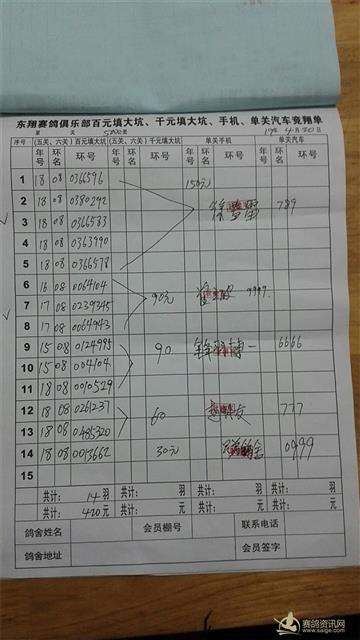 东翔赛鸽俱乐部百元填大坑、千元填大坑、手机、单关汽车竞翔单
天 天 500公里 19年 4月20日
序号 (五关、六关)百元填大坑 (五关、六关)千元填大坑 单关手机 单关汽车
年号 环名 环号 年号 环名 环号 年号 环名 环号 年号 环名 环号
1 18 08 0366596 150元
2 18 08 0380292 789
3 18 08 0366583
4 18 08 0363990
5 18 08 0366578
6 16 08 0064104
7 17 08 0239345 90元 9999
8 17 08 0064943
9 15 08 0124985 90 6666
10 15 08 004104
11 18 08 0010529
12 18 08 0261237 60 777
13 18 08 0485320
14 18 08 0013662 30元 0999
15
共计: 14 羽 共计: 羽 共计: 羽 共计: 羽
共计: 420 元 共计: 元 共计: 元 共计: 元
鸽舍姓名 会员棚号 联系电话
鸽舍地址 会员签字
赛鸽资讯网
www.saige.com